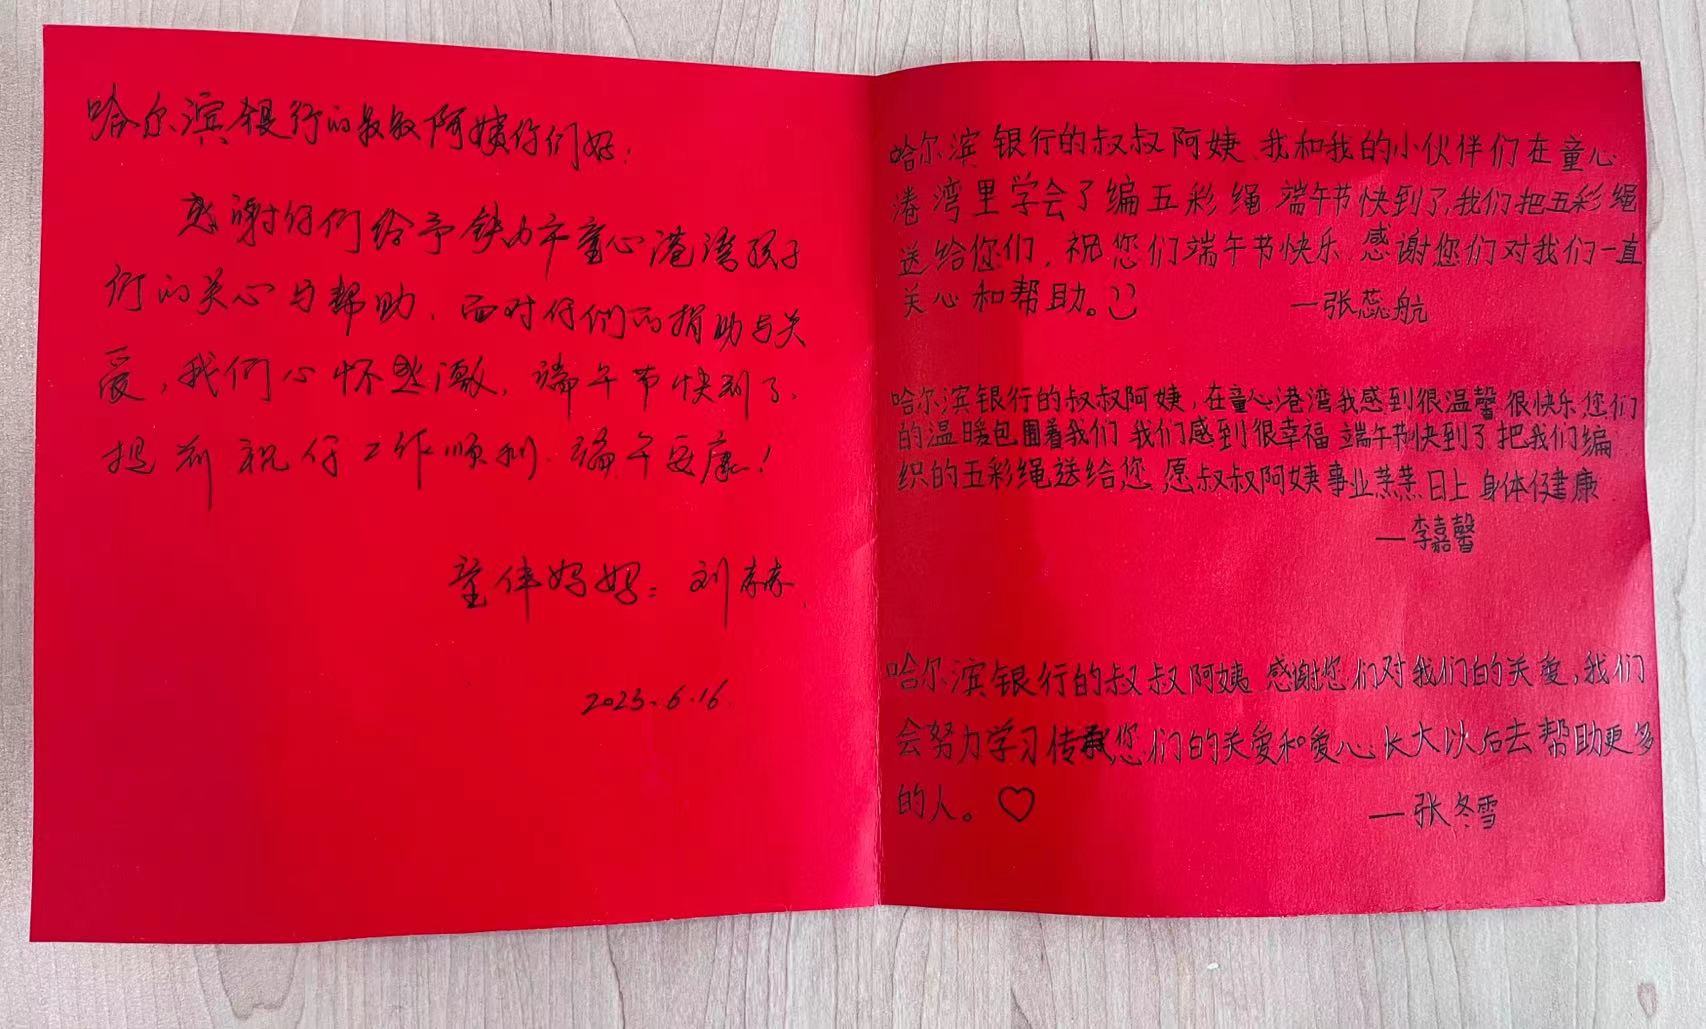 哈尔滨银行的叔叔阿姨你们好：
感谢你们给予铁力市童心港湾孩子
们的关心与帮助，面对你们的捐助与关
爱，我们心怀感激，端午节快到了，
提前祝你工作顺利，端午安康！
童伴妈妈：刘赫
2023.6.16
哈尔滨银行的叔叔阿姨、我和我的小伙伴们在童心
港湾里学会了编五彩绳，端午节快到了，我们把五彩绳
送给您们，祝您们端午节快乐，感谢您们对我们一直
关心和帮助。
—张蕊航
哈尔滨银行的叔叔阿姨，在童心港湾我感到很温馨很快乐，您们
的温暖包围着我们 我们感到很幸福 端午节快到了把我们编
织的五彩绳送给您，愿叔叔阿姨事业蒸蒸日上 身体健康
—李嘉馨
哈尔滨银行的叔叔阿姨 感谢您们对我们的关爱，我们
会努力学习传承您们的关爱和爱心，长大以后去帮助更多
的人。♡
—张冬雪